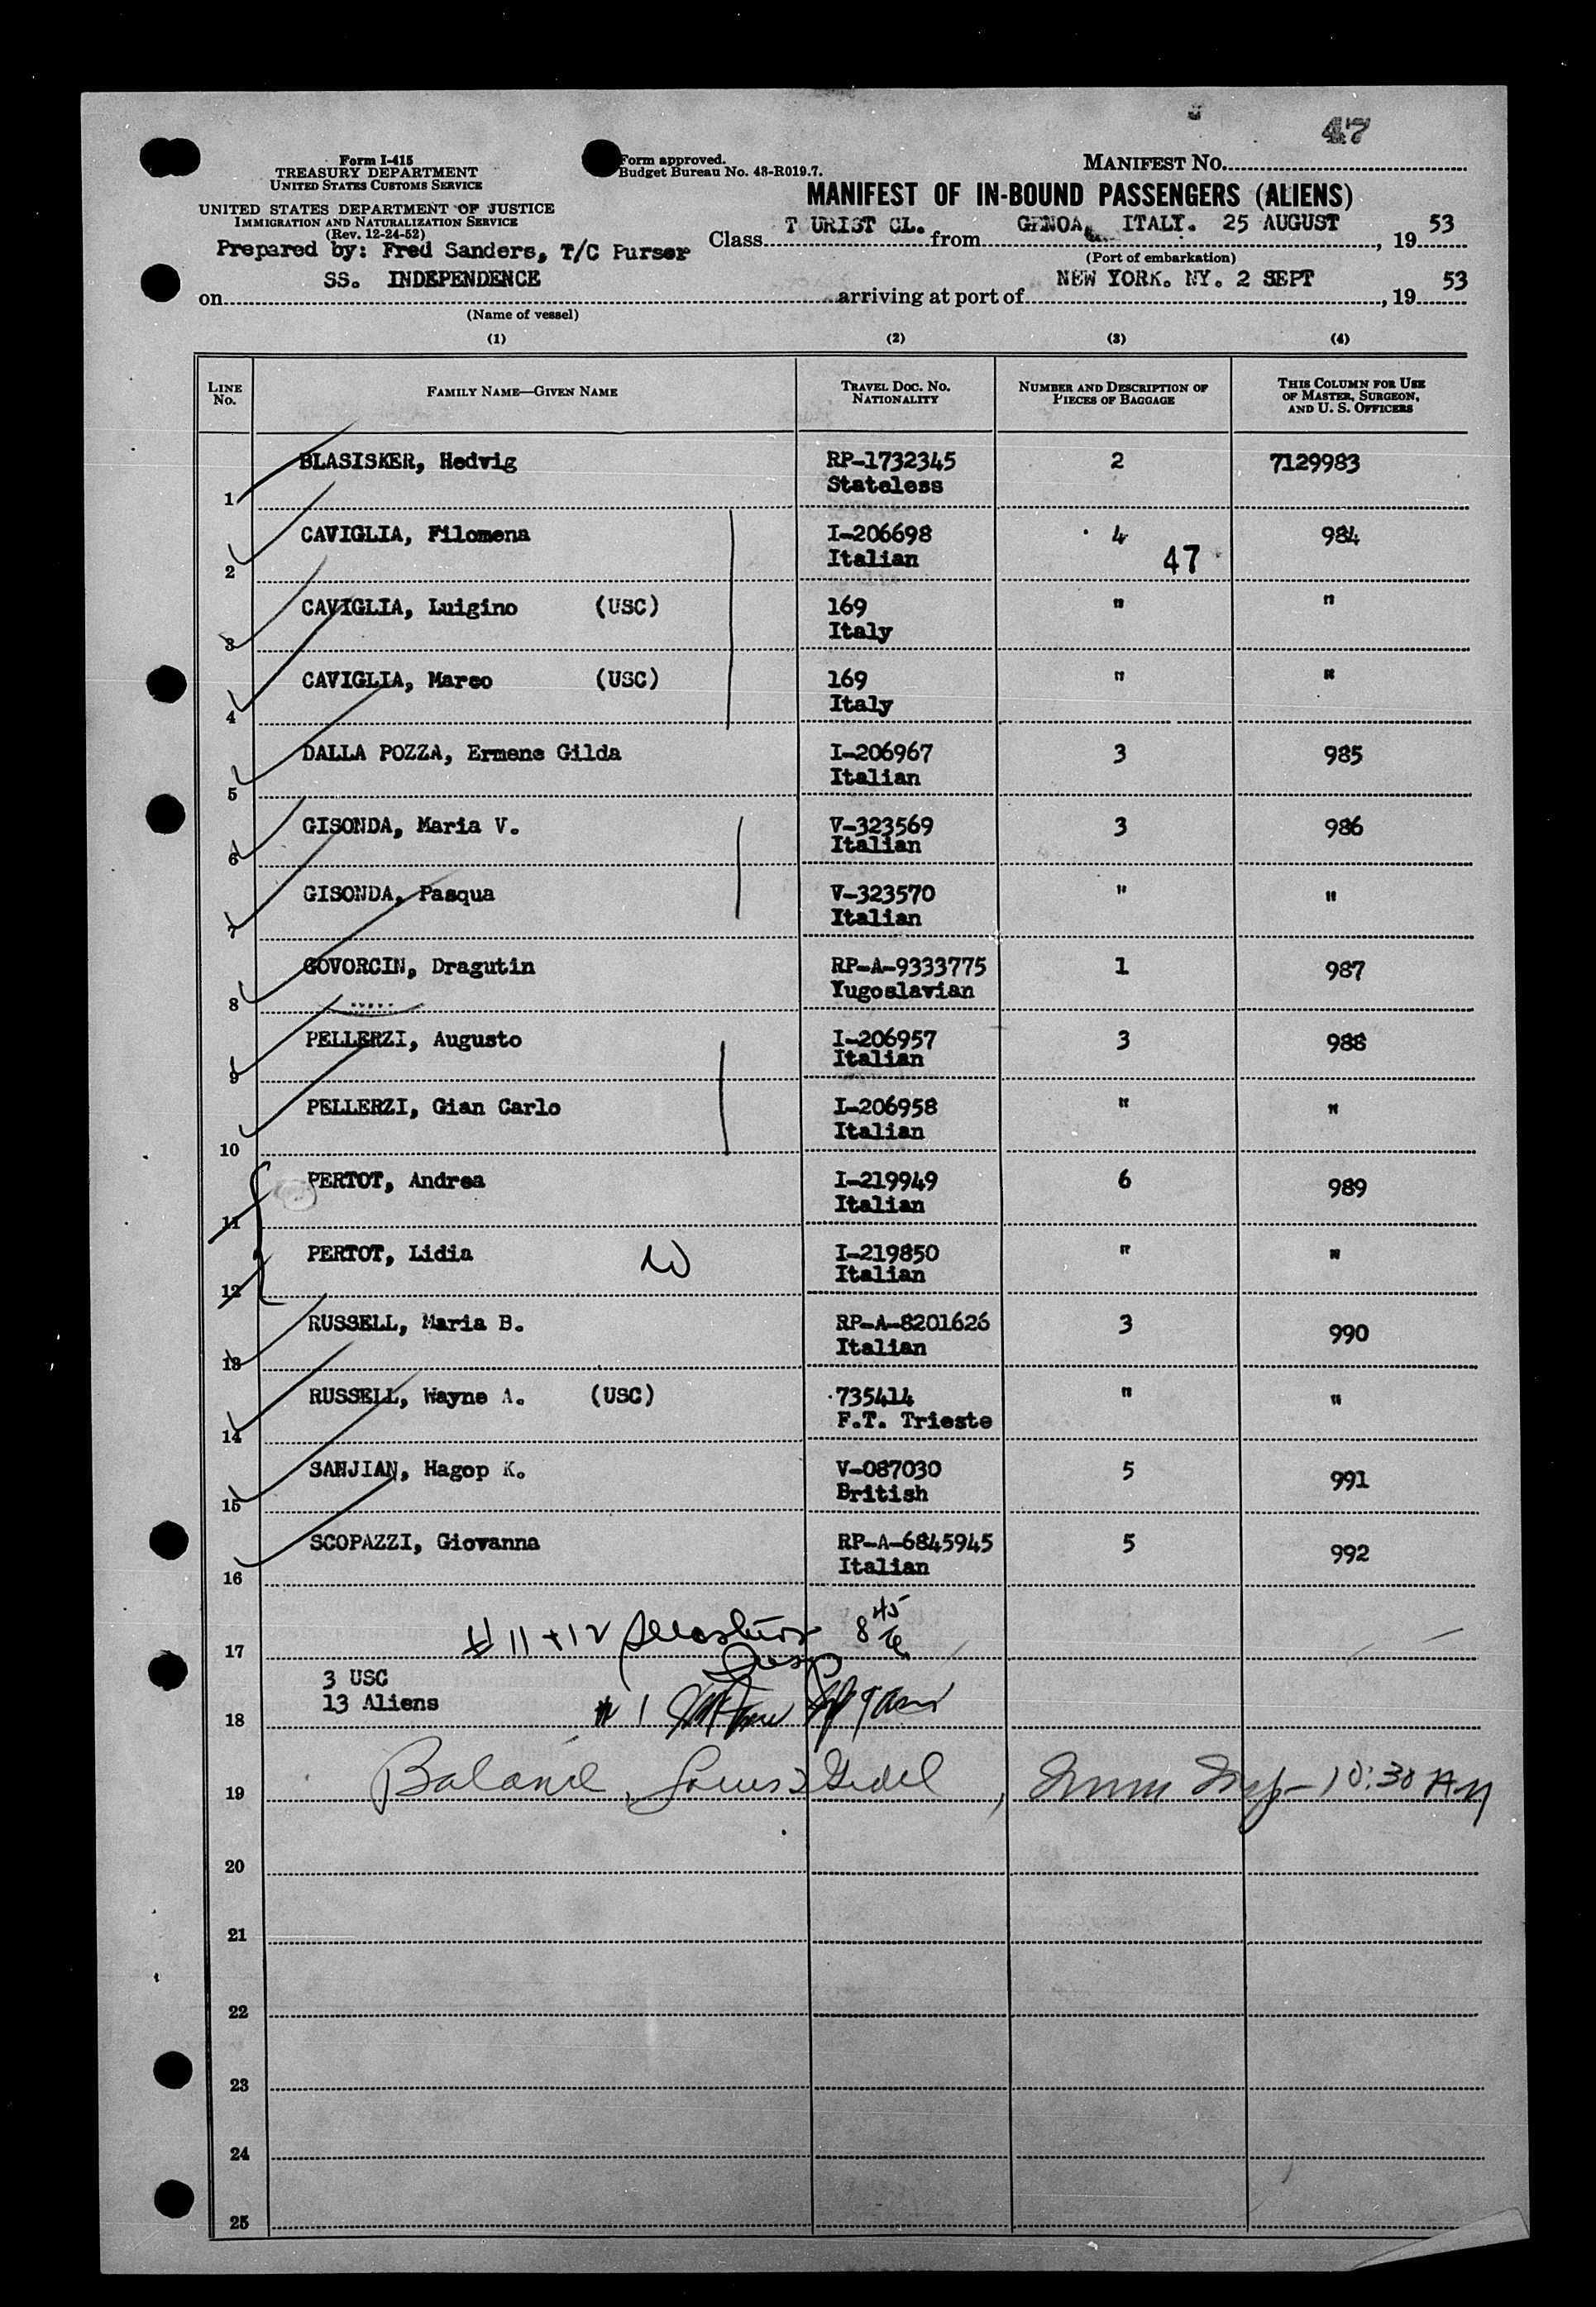 47
Form I-415
TREASURY DEPARTMENT
UNITED STATES CUSTOMS SERVICE
UNITED STATES DEPARTMENT OF JUSTICE
IMMIGRATION AND NATURALIZATION SERVICE
(Rev. 12-24-52)
Form approved.
Budget Bureau No. 43-R019.7.
MANIFEST NO.
MANIFEST OF IN-BOUND PASSENGERS (ALIENS)
Prepared by: Fred Sanders, T/C Purser
Class T URIST CL. from GENOA, ITALY. 25 AUGUST, 19 53
(Port of embarkation)
on SS. INDEPENDENCE arriving at port of NEW YORK. NY. 2 SEPT, 19 53
(Name of vessel)
(1) (2) (3) (4)
LINE NO. FAMILY NAME—GIVEN NAME TRAVEL DOC. NO. NATIONALITY NUMBER AND DESCRIPTION OF PIECES OF BAGGAGE THIS COLUMN FOR USE OF MASTER, SURGEON, AND U. S. OFFICERS
BLASISKER, Hedvig RP-1732345 2 7129983
1 Stateless
CAVIGLIA, Filomena I-206698 4 984
2 Italian 47
CAVIGLIA, Luigino (USC) 169 " "
3 Italy
CAVIGLIA, Marco (USC) 169 " "
4 Italy
DALLA POZZA, Ermene Gilda I-206967 3 985
5 Italian
GISONDA, Maria V. V-323569 3 986
6 Italian
GISONDA, Pasqua V-323570 " "
7 Italian
GOVORCIN, Dragutin RP-A-9333775 1 987
8 Yugoslavian
PELLERZI, Augusto I-206957 3 988
9 Italian
PELLERZI, Gian Carlo I-206958 " "
10 Italian
PERTOT, Andrea I-219949 6 989
11 Italian
PERTOT, Lidia I-219850 " "
12 Italian
RUSSELL, Maria B. RP-A-8201626 3 990
13 Italian
RUSSELL, Wayne A. (USC) 735414 " "
14 F.T. Trieste
SANJIAN, Hagop K. V-087030 5 991
15 British
SCOPAZZI, Giovanna RP-A-6845945 5 992
16 Italian
# 11 + 12 8 45
17
3 USC
13 Aliens # 1
18
19 Insp - 10:30 AM
20
21
22
23
24
25